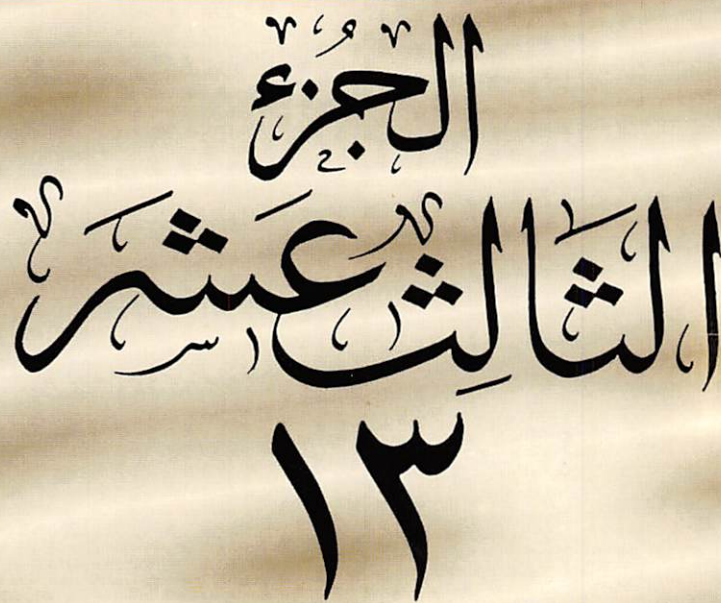 الجزء
الثَالِث عَشَر
١٣